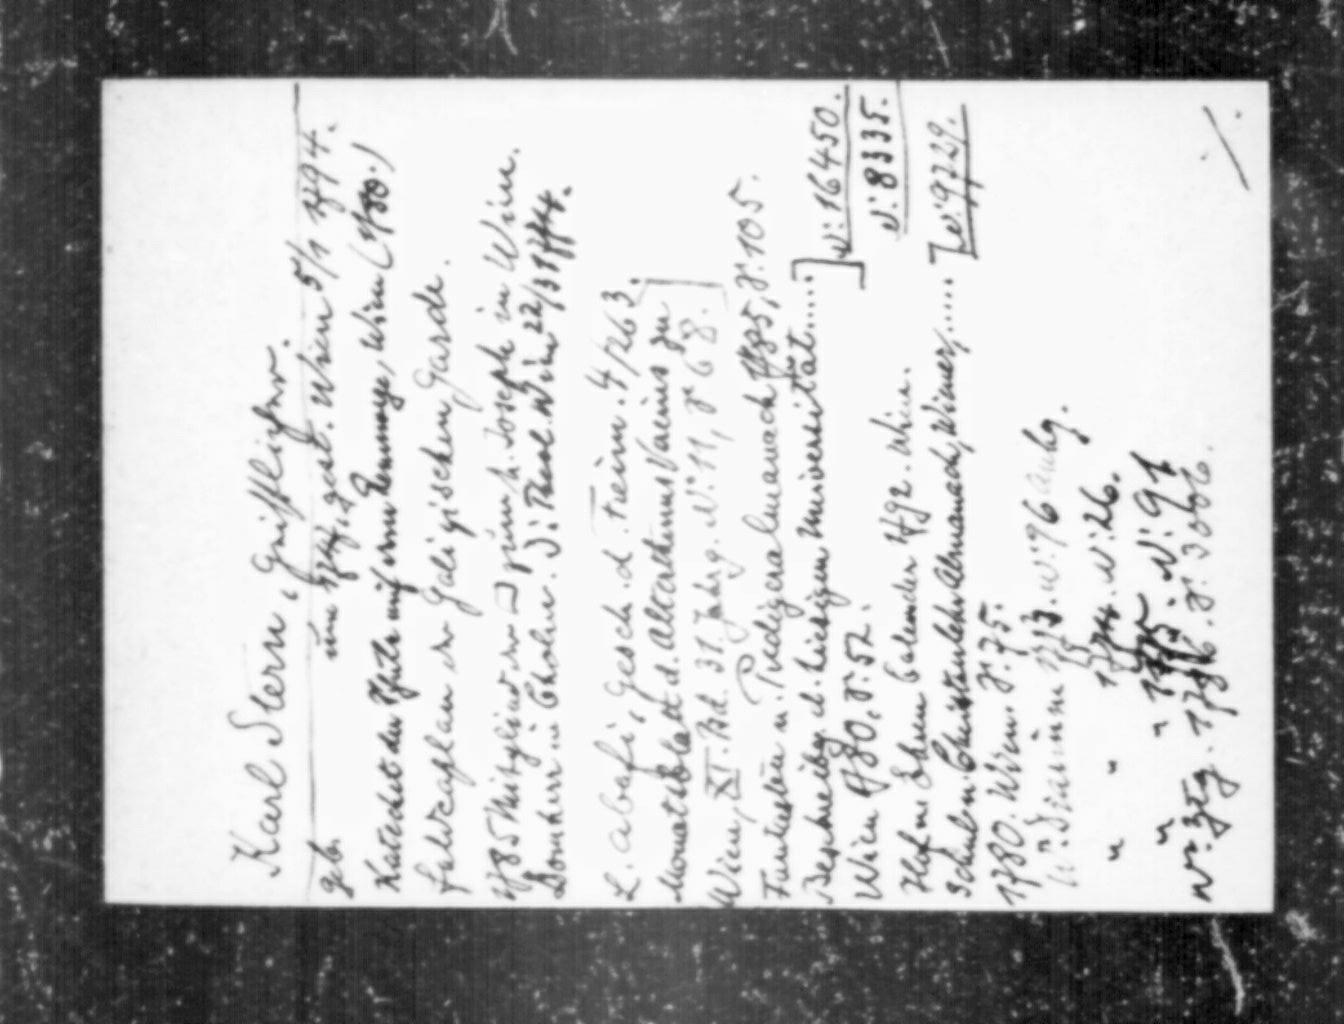 Karl Stern, Geistlicher.
geb. um 1747, gest. Wien 5/1 1794.
Katechet der Pfarre auf dem Rennwege, Wien (1780.)
Feldcaplan der Galizischen Garde.
1785 Mitglied der zum h. Joseph in Wien.
Domherr in Cholm.
L. Abafi, Gesch. d. Freim. 4/263.
Monatsblatt d. Alterthums Vereins zu
Wien, XI. Bd. 31. Jahrg. N: 11, S 68.
Fastenlehr u. Predigeralmanach 1785, S. 105.
Beschreibg. d. hiesigen Universität.....] N: 16450.
Wien 1780, S. 52. N: 8335.
Hof u Ehren Calender 1792. Wien.
Schul- u. Christenlehr Almanach, Wiener,..... N: 9729.
1780. Wien. S. 75.
Wr. Diarium 1773. N: 76 Anhg.
" " 1774. N: 26.
" " 1775. N: 91
Wr. Ztg. 1786. S. 3066.